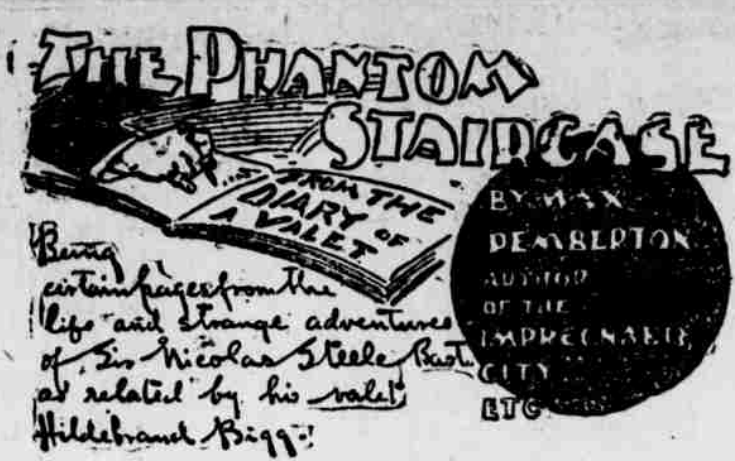 THE PHANTOM
STAIRCASE
FROM THE
DIARY OF
A VALET
BY MAX
PEMBERTON
AUTHOR
OF THE
IMPREGNABLE
CITY
ETC
Being
certain pages from the
life and strange adventures
of Sir Nicolas Steele, Bart.
as related by his valet,
Hildebrand Bigg.